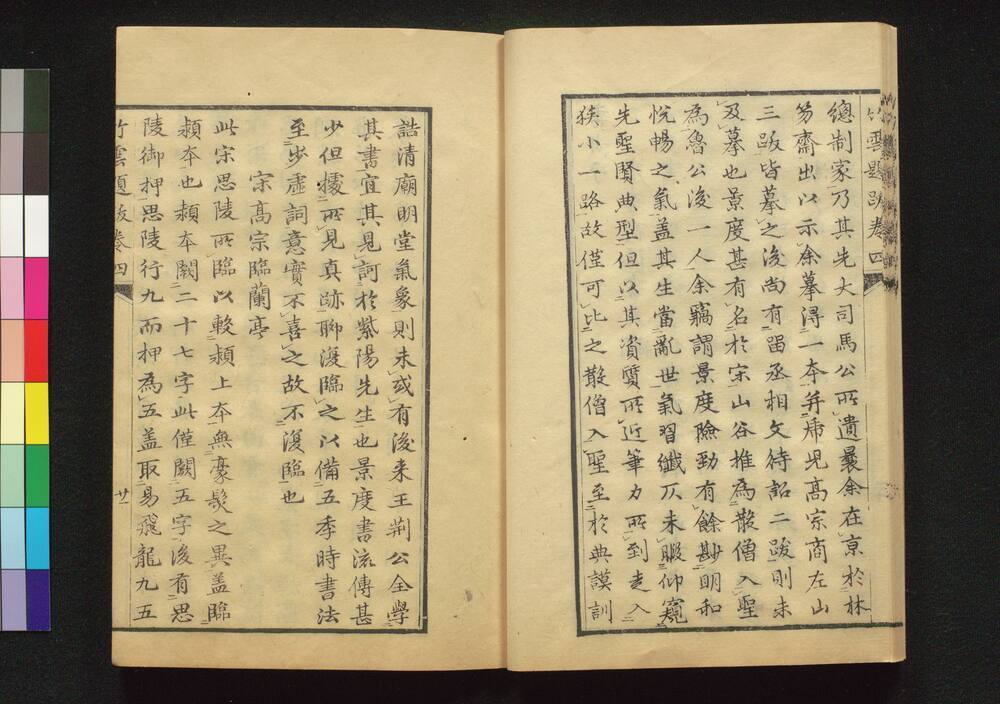 竹雲題跋卷四
總制家乃其先大司馬公所遺曩余在京於林
芴齋出以示余摹得一本并帋皃高宗商左山
三跋皆摹之後尚有畱丞相文待詔二跋則未
及摹也景度甚有名於宋山谷推為散僧入聖
為魯公後一人余竊謂景度險勁有餘尠明和
悅暢之氣盖其生當亂世氣習纖仄未暇仰窺
先聖賢典型但以其資質所近筆力所到走入
狹小一路故僅可比之散僧入聖至於典謨訓
誥清廟明堂氣象則未或有後來王荆公全學
其書宜其見訶於紫陽先生也景度書流傳甚
少但據所見真跡聊復臨之以備五季時書法
至步虛詞意實不喜之故不復臨也
宋髙宗臨蘭亭
此宋思陵所臨以較潁上本無豪髮之異盖臨
潁本也潁本闕二十七字此僅闕五字後有思
陵御押思陵行九而押為五盖取易飛龍九五
竹雲題跋卷四
廿一